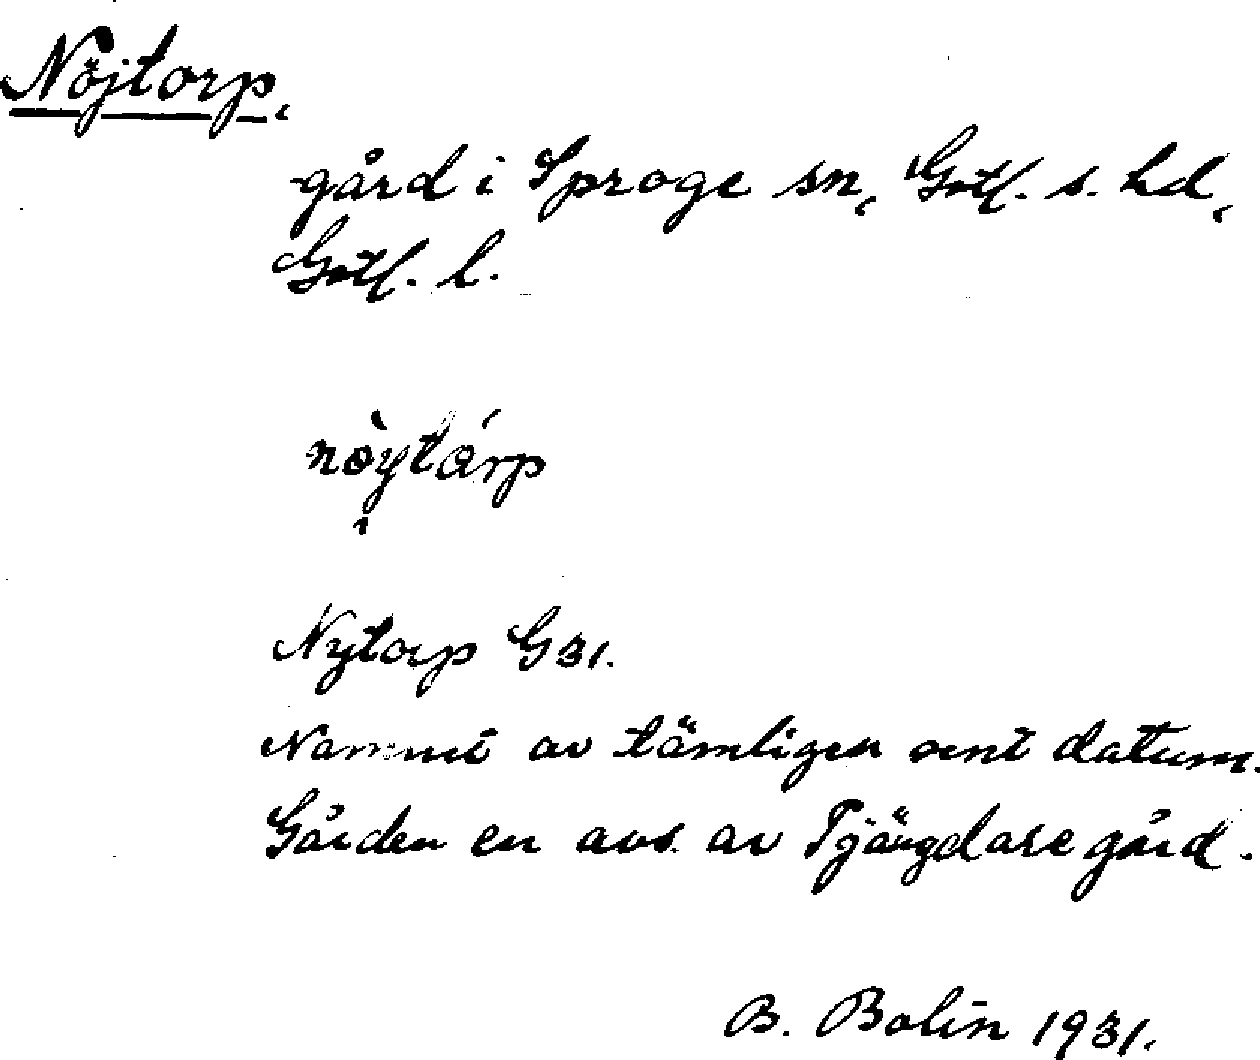 Nöjtorp,
gård i Sproge sn, Gotl. s. hd,
Gotl. l.
nòytárp
Nytorp G31.
Namnet av tämligen sent datum.
Gården en avs. av Tjängdare gård.
B. Bolin 1931.